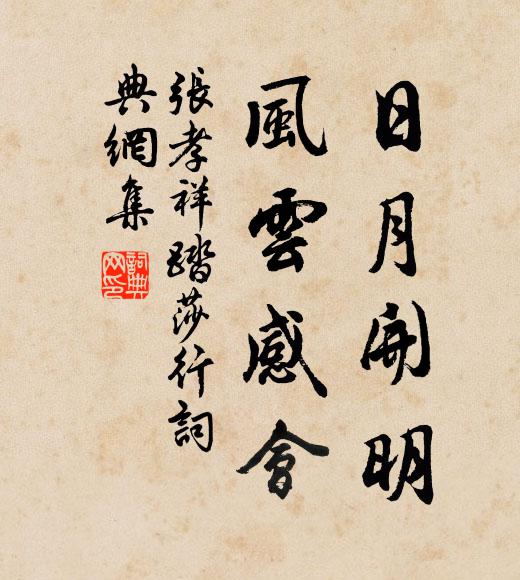 日月開明
風雲感會
張孝祥踏莎行詞
典網集
詞典網印